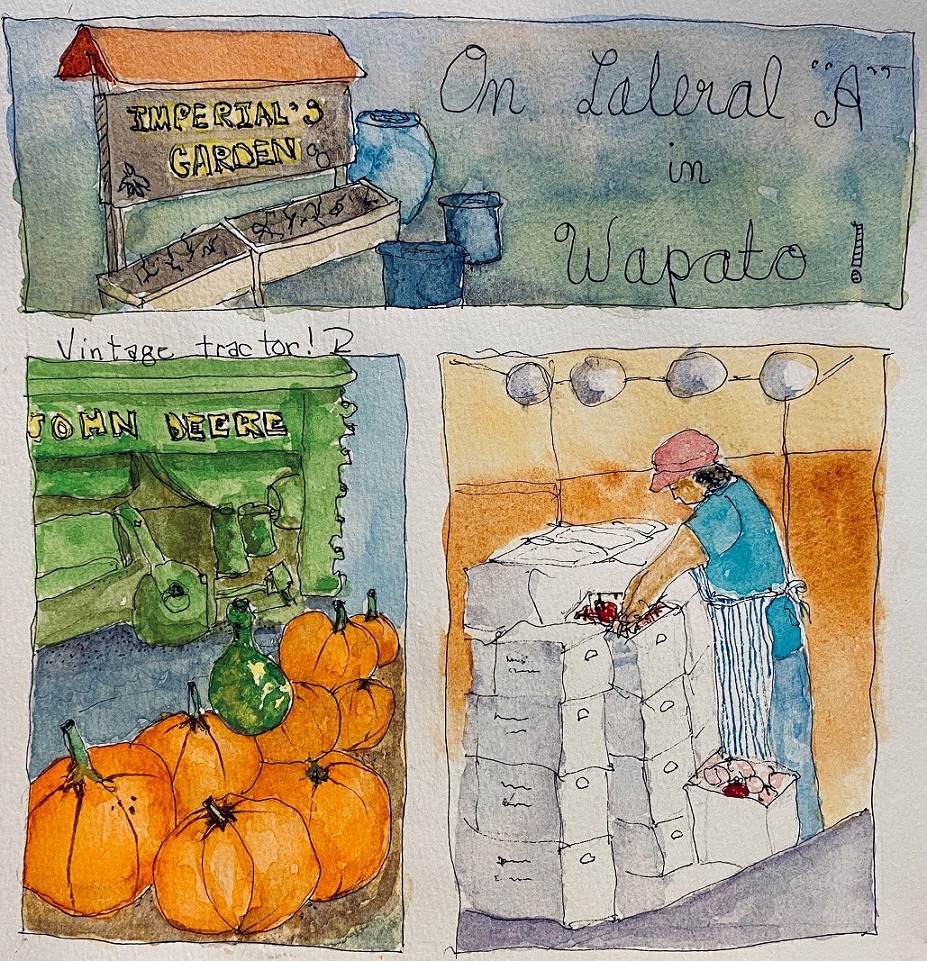 IMPERIAL'S
GARDEN
On Lateral "A"
in
Wapato!
Vintage tractor!
JOHN DEERE